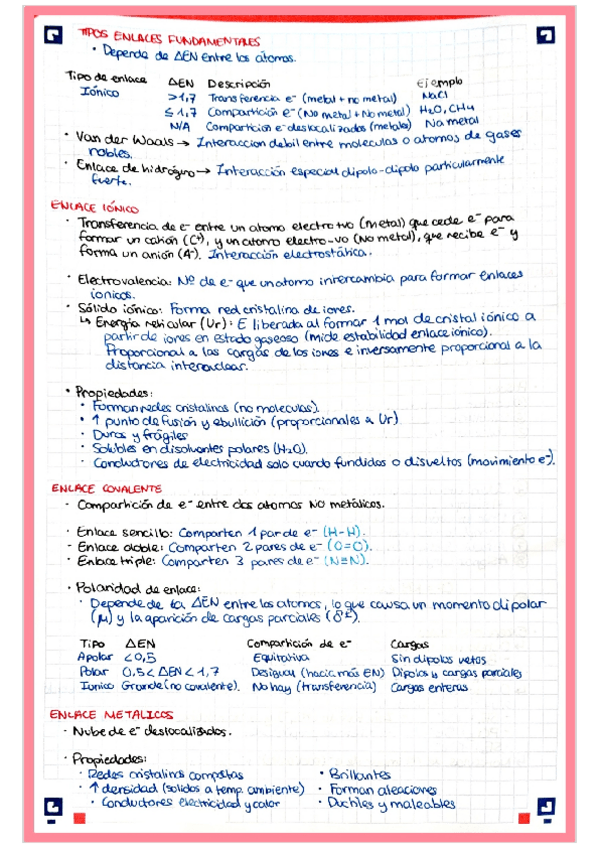 TIPOS ENLACES FUNDAMENTALES
· Depende de ΔEN entre los átomos.
Tipo de enlace ΔEN Descripción Ejemplo
Iónico >1,7 Transferencia e⁻ (metal + no metal) NaCl
≤ 1,7 Compartición e⁻ (No metal + No metal) H₂O, CH₄
N/A Compartición e⁻ deslocalizados (metales) Na metal
· Van der Waals → Interaccion debil entre moleculas o atomos de gases
nobles.
· Enlace de hidrógeno → Interacción especial dipolo-dipolo particularmente
fuerte.
ENLACE IÓNICO
· Transferencia de e⁻ entre un atomo electro tvo (metal) que cede e⁻ para
formar un catión (C⁺), y un atomo electro-vo (No metal), que recibe e⁻ y
forma un anión (A⁻). Interacción electrostática.
· Electrovalencia: Nº de e⁻ que un atomo intercambia para formar enlaces
ionicos.
· Sólido iónico: Forma red cristalina de iones.
↳ Energía reticular (Ur): E liberada al formar 1 mol de cristal iónico a
partir de iones en estado gaseoso (mide estabilidad enlace iónico).
Proporcional a las cargas de los iones e inversamente proporcional a la
distancia internuclear.
· Propiedades:
· Forman redes cristalinas (no moleculas).
· ↑ punto de fusión y ebullición (proporcionales a Ur)
· Duros y frágiles
· Solubles en disolventes polares (H₂O).
· Conductores de electricidad solo cuando fundidos o disueltos (movimiento e⁻).
ENLACE COVALENTE
· Compartición de e⁻ entre dos atomos NO metálicos.
· Enlace sencillo: Comparten 1 par de e⁻ (H-H).
· Enlace doble: Comparten 2 pares de e⁻ (O=O).
· Enlace triple: Comparten 3 pares de e⁻ (N≡N).
· Polaridad de enlace:
· Depende de la ΔEN entre los atomos, lo que causa un momento dipolar
(μ) y la aparición de cargas parciales (δ±).
Tipo ΔEN Compartición de e⁻ Cargas
Apolar <0,5 Equitativa Sin dipolos netos
Polar 0,5 < ΔEN < 1,7 Desigual (hacia más EN) Dipolos y cargas parciales
Ionico Grande (no covalente). No hay (transferencia) Cargas enteras
ENLACE METALICOS
· Nube de e⁻ deslocalizados.
· Propiedades:
· Redes cristalinas compactas · Brillantes
· ↑ densidad (solidos a temp. ambiente) · Forman aleaciones
· Conductores electricidad y calor · Ductiles y maleables